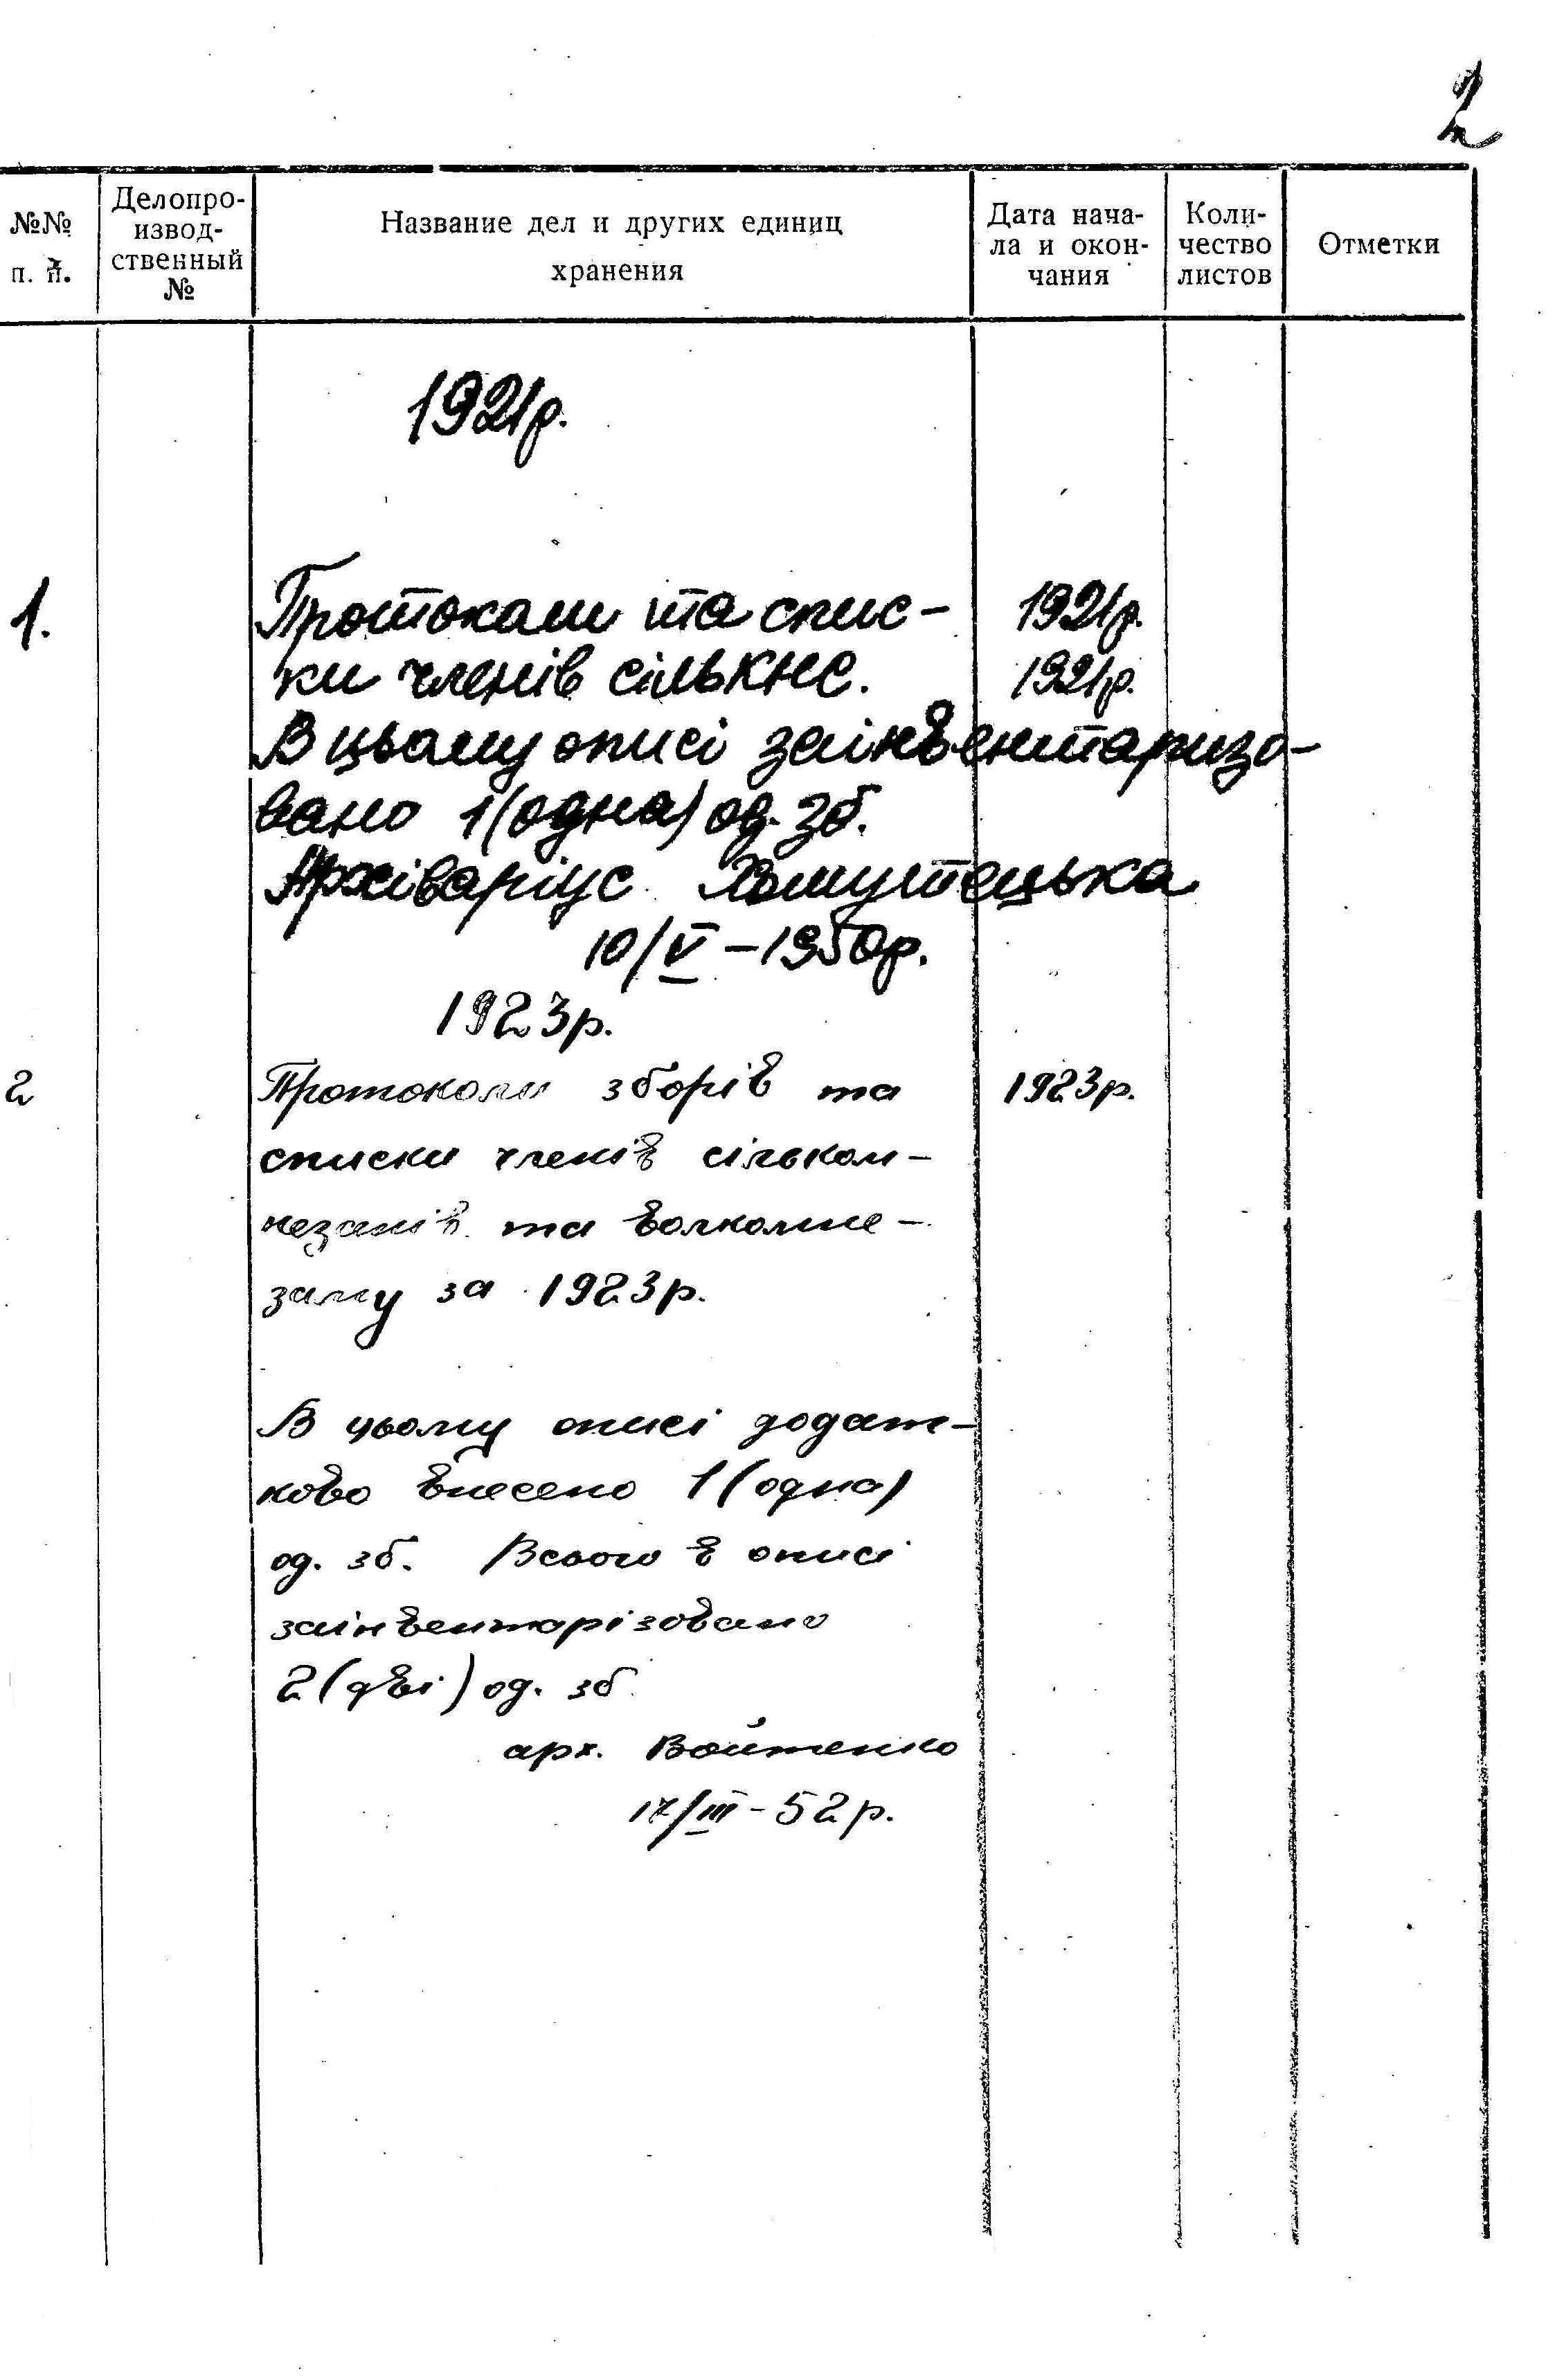 2
№№
п. п.
Делопро-
извод-
ственный
№
Название дел и других единиц
хранения
Дата нача-
ла и окон-
чания
Коли-
чество
листов
Отметки
1921р.
1. Протоколи та спис- 1921р.
ки членів сількнс. 1921р.
В цьому описі заінвентаризо-
вано 1(одна) од. зб.
Архіваріус Хомутецька
10/V – 1950р.
1923р.
2 Протоколи зборів та 1923р.
списки членів сільком-
незамів та волкомне-
заму за 1923р.
В цьому описі додат-
ково внесено 1(одна)
од. зб. Всього в описі
заінвентарізовано
2(дві) од. зб.
арх. Войтенко
17/III - 52р.